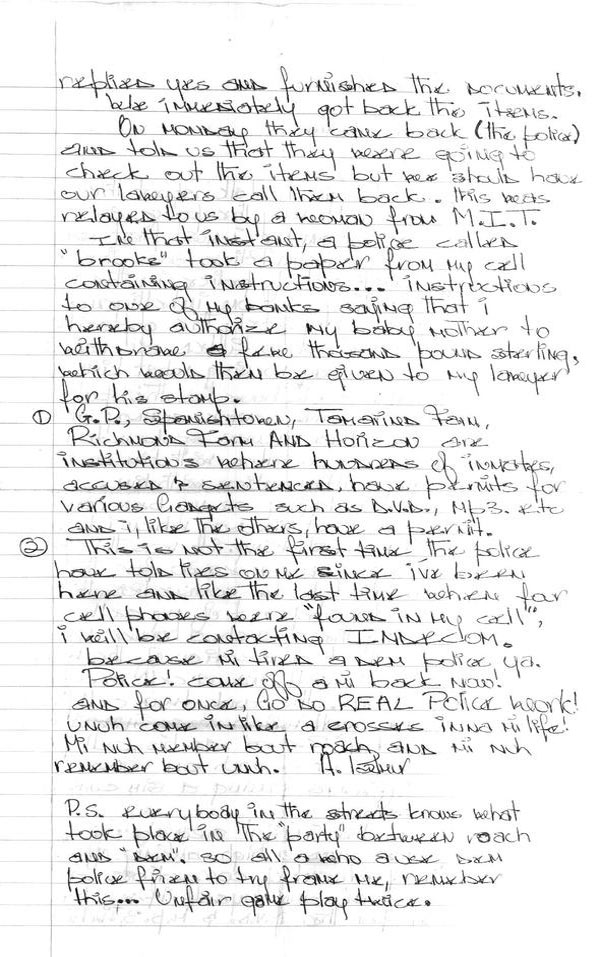 replied yes and furnished the documents.
We immediately got back the items.
On Monday they came back (the police)
and told us that they were going to
check out the items but we should have
our lawyers call them back. This was
relayed to us by a woman from M.I.T.
In that instant, a police called
"brooks" took a paper from my cell
containing instructions... instructions
to one of my banks saying that i
hereby authorize my baby mother to
withdraw a few thousand pound sterling,
which would then be given to my lawyer
for his stamp.
① G.P., Spanishtown, Tamarind Farm,
Richmond Farm AND Horizon are
institutions where hundreds of inmates,
accused & sentenced, have permits for
various Gadgets such as D.V.D., Mp3. etc
and i, like the others, have a permit.
② This is not the first time the police
have told lies on me since i've been
here and like the last time where four
cell phones were "found in my cell",
i will be contacting INDECOM.
because mi tired a dem police ya.
Police! come off a mi back now!
and for once, Go do REAL Police work!
unuh come in like a crosses inna mi life!
Mi nuh member bout roach and mi nuh
remember bout unuh.
P.S. everybody in the streets knows what
took place in the "party" between roach
and "dem". so all a who a use dem
police frien to try frame me, remember
this... Unfair game play twice.